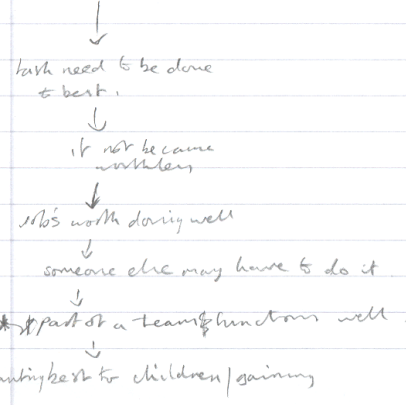 task need to be done
to best.
if not became
worthless
job's worth doing well
someone else may have to do it
* part of a team & functions well
wanting best for children/gaining